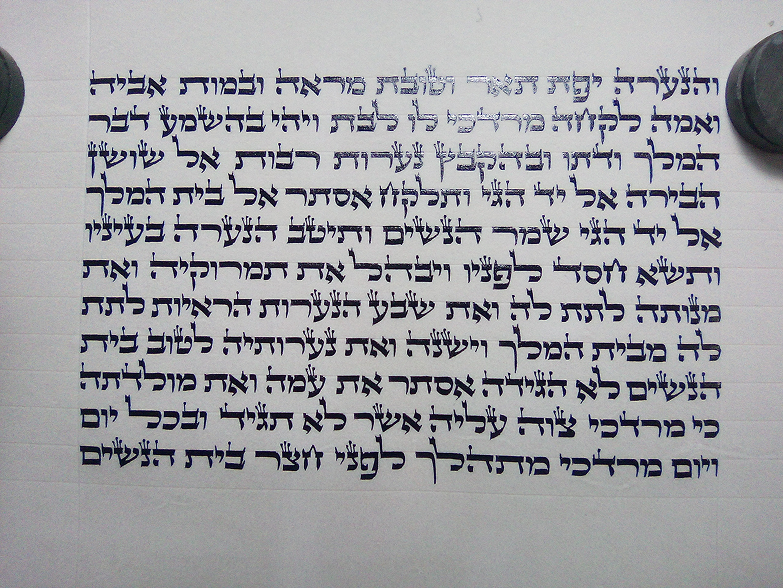 והנערה יפת תאר וטובת מראה ובמות אביה
ואמה לקחה מרדכי לו לבת ויהי בהשמע דבר
המלך ודתו ובהקבץ נערות רבות אל שושן
הבירה אל יד הגי ותלקח אסתר אל בית המלך
אל יד הגי שמר הנשים ותיטב הנערה בעיניו
ותשא חסד לפניו ויבהל את תמרוקיה ואת
מנותה לתת לה ואת שבע הנערות הראיות לתת
לה מבית המלך וישנה ואת נערותיה לטוב בית
הנשים לא הגידה אסתר את עמה ואת מולדתה
כי מרדכי צוה עליה אשר לא תגיד ובכל יום
ויום מרדכי מתהלך לפני חצר בית הנשים